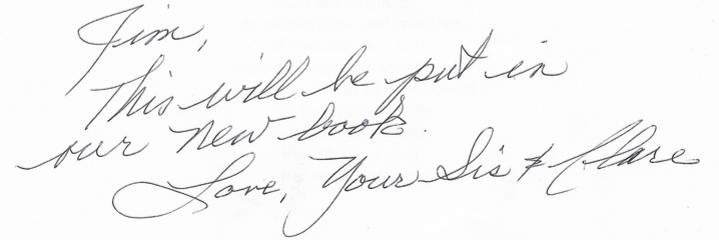 Jim,
This will be put in
our new book.
Love, Your Sis & Clare